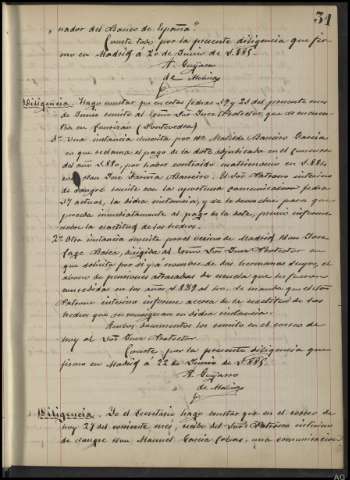 31
nador del Banco de España"
Conste por la presente diligencia que fir
mo en Madrid á 20 de Junio de 1.885.
de
Diligencia. Hago constar que en estas fechas 19 y 21 del presente mes
de Junio remito al Señor Juez Protector, que se encuen
tra en (Pontevedra)
1ª Una instancia suscrita por Dª Matilde Barreiro García
en que reclama el pago de la dote adjudicada en el
del año 1.880, por haber contraido matrimonio en 1.884
con Don José Barreiro. El Señor Patrono interino
de Sangre remite con la oportuna comunicacion fecha
17 actual, la dicha instancia, y se le devuelve para que
proceda inmediatamente al pago de la dote, previo informe
sobre la exactitud de los hechos.
2ª Otra instancia suscrita por el vecino de Madrid Don
dirigida al Señor Juez Protector en
que solicita por sí y á nombre de sus hermanos el
abono de pensiones atrasadas de escuela que le fueron
concedidas en los años 1.859 al 60, de manda que el Señor
Patrono interino informe acerca de la exactitud de los
hechos que se consignan en dicha instancia.
Ambos documentos los remito en el correo de
hoy al Señor Juez Protector.
Conste por la presente diligencia que
firmo en Madrid á 22 de Junio de 1.885.
de
Diligencia. Yo el Secretario hago constar que en el correo de
hoy 27 del corriente mes, recibo del Señor Patrono interino
de Sangre Don Manuel García una comunicacion